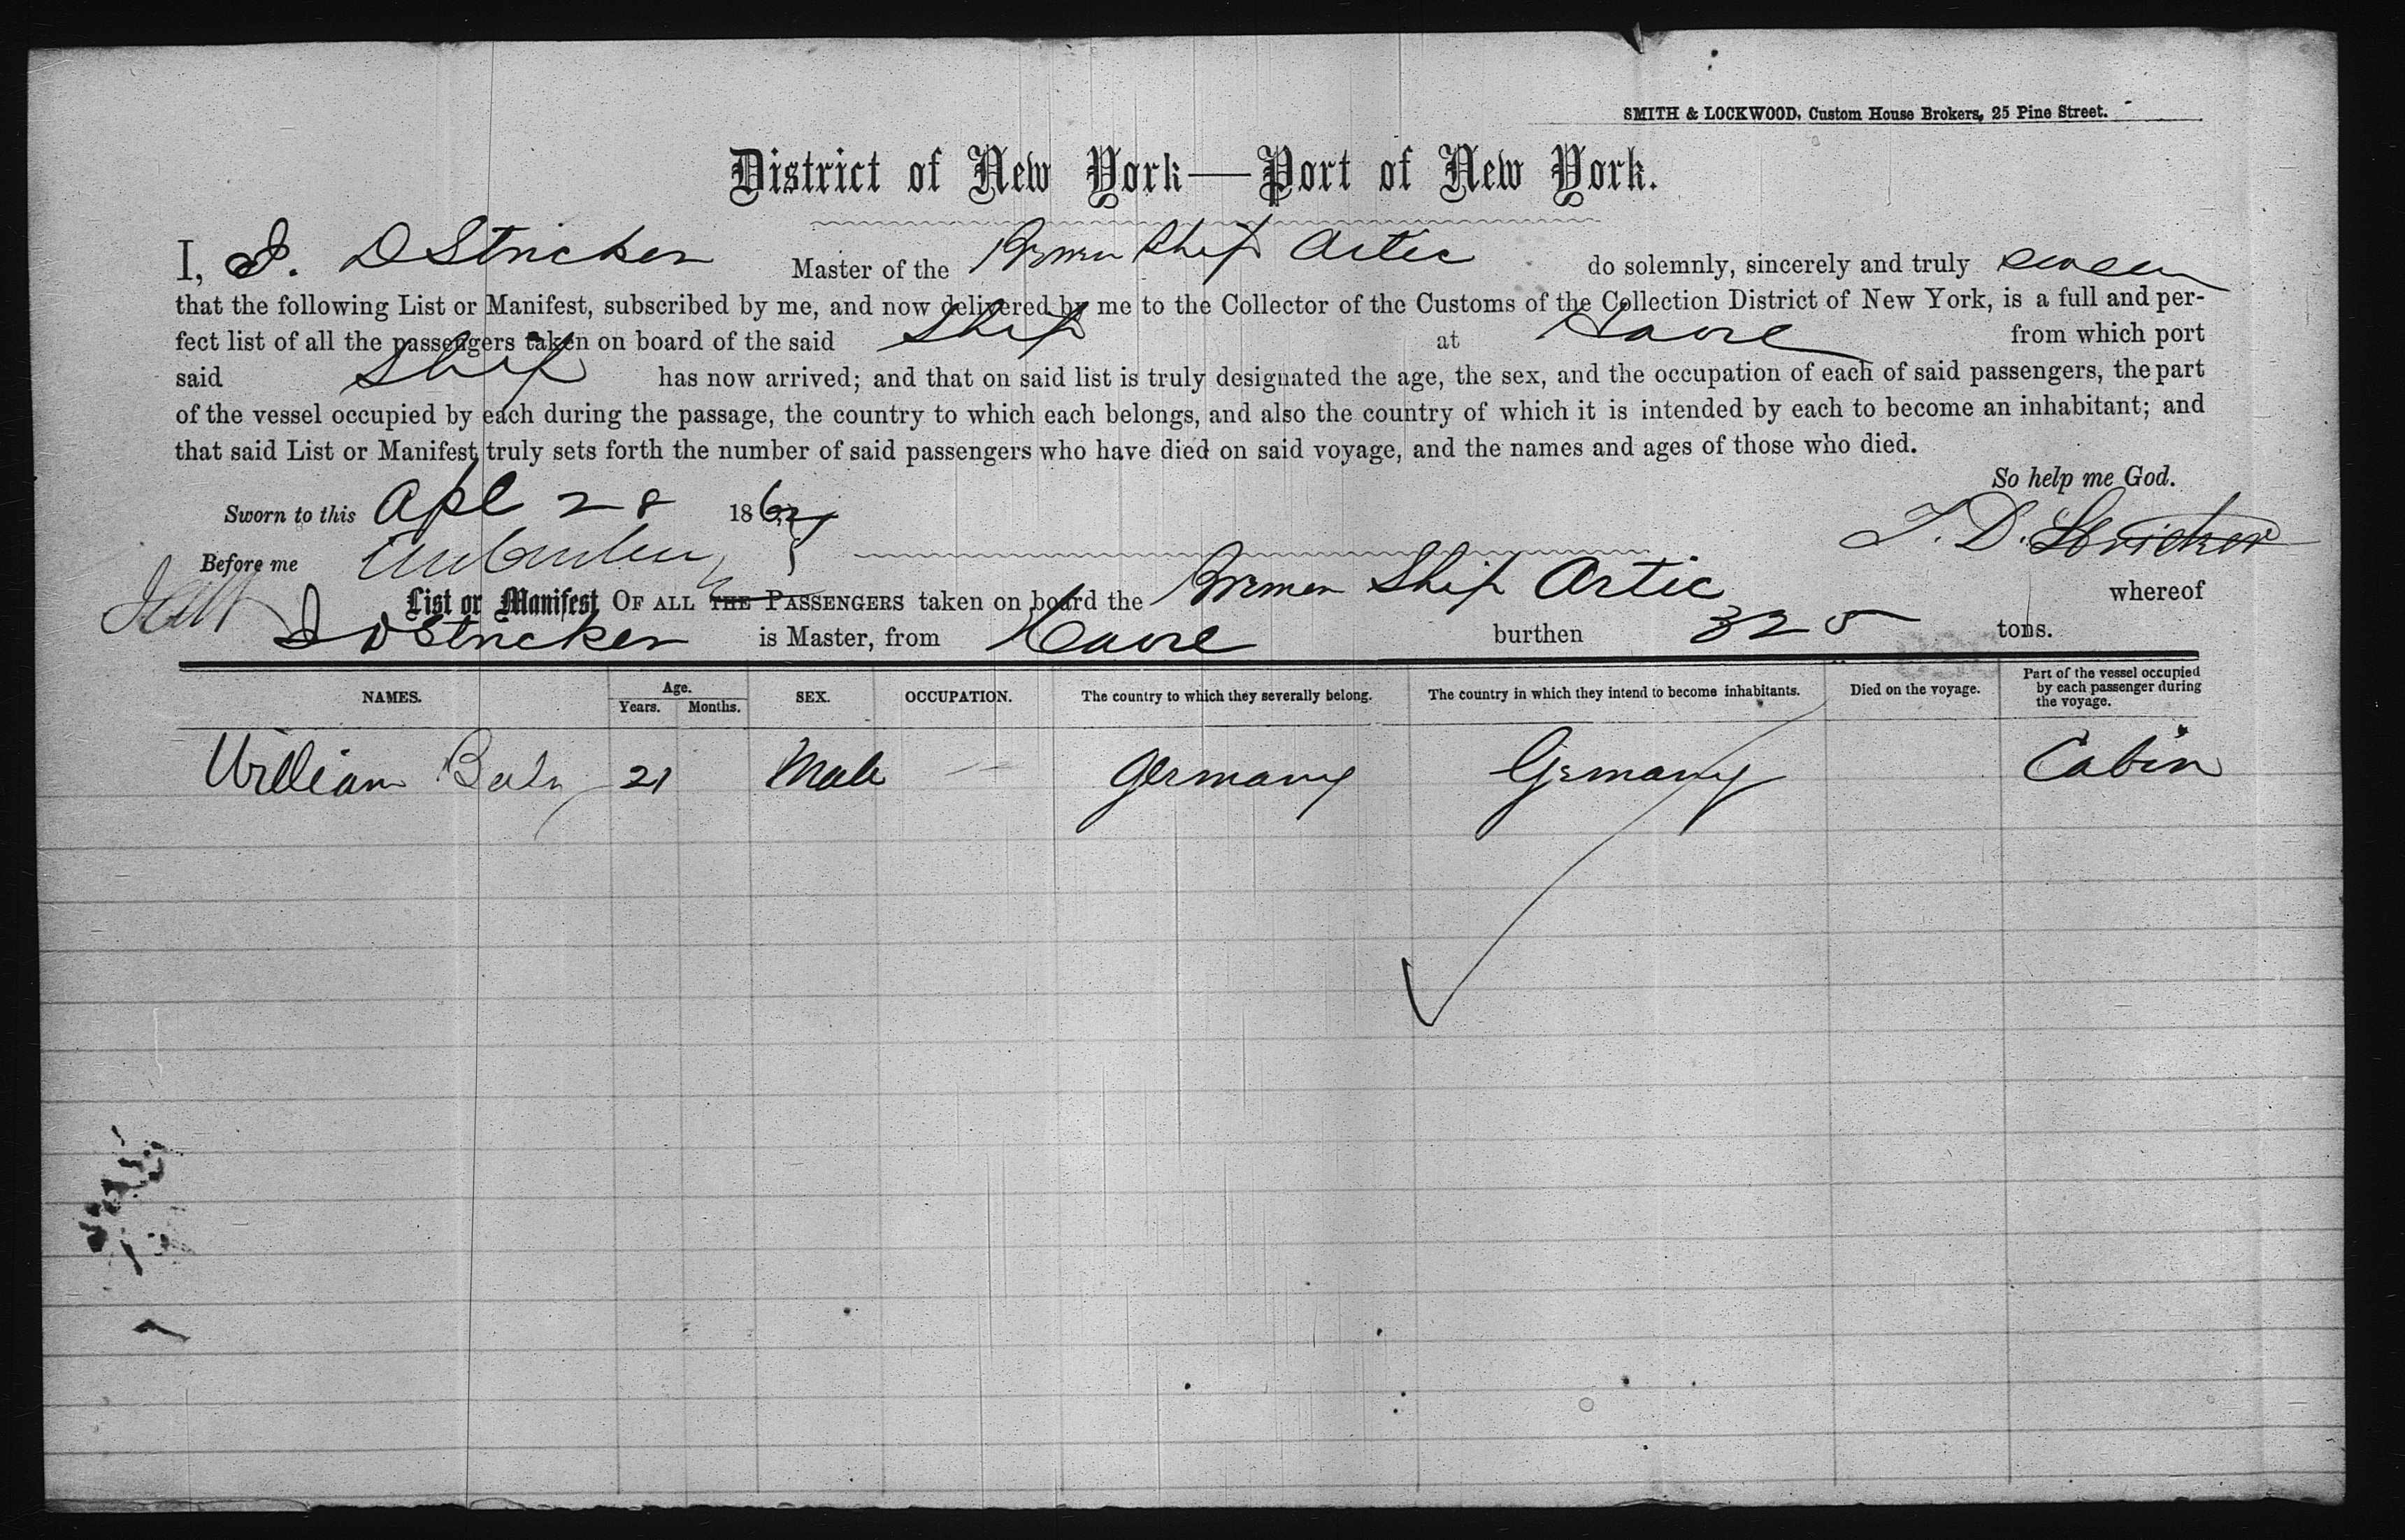 SMITH & LOCKWOOD, Custom House Brokers, 25 Pine Street.
District of New York—Port of New York.
I, J. D Stricker Master of the Bremen Ship Artic do solemnly, sincerely and truly swear
that the following List or Manifest, subscribed by me, and now delivered by me to the Collector of the Customs of the Collection District of New York, is a full and per-
fect list of all the passengers taken on board of the said Ship at Havre from which port
said Ship has now arrived; and that on said list is truly designated the age, the sex, and the occupation of each of said passengers, the part
of the vessel occupied by each during the passage, the country to which each belongs, and also the country of which it is intended by each to become an inhabitant; and
that said List or Manifest truly sets forth the number of said passengers who have died on said voyage, and the names and ages of those who died.
So help me God.
Sworn to this Apl 28 186
J. D. Stricker
Before me
List or Manifest OF ALL THE PASSENGERS taken on board the Bremen Ship Artic whereof
J D Stricker is Master, from Havre burthen 325 tons.
NAMES. Age. Years. Months. SEX. OCCUPATION. The country to which they severally belong. The country in which they intend to become inhabitants. Died on the voyage. Part of the vessel occupied by each passenger during the voyage.
William 21 Male Germany Germany Cabin